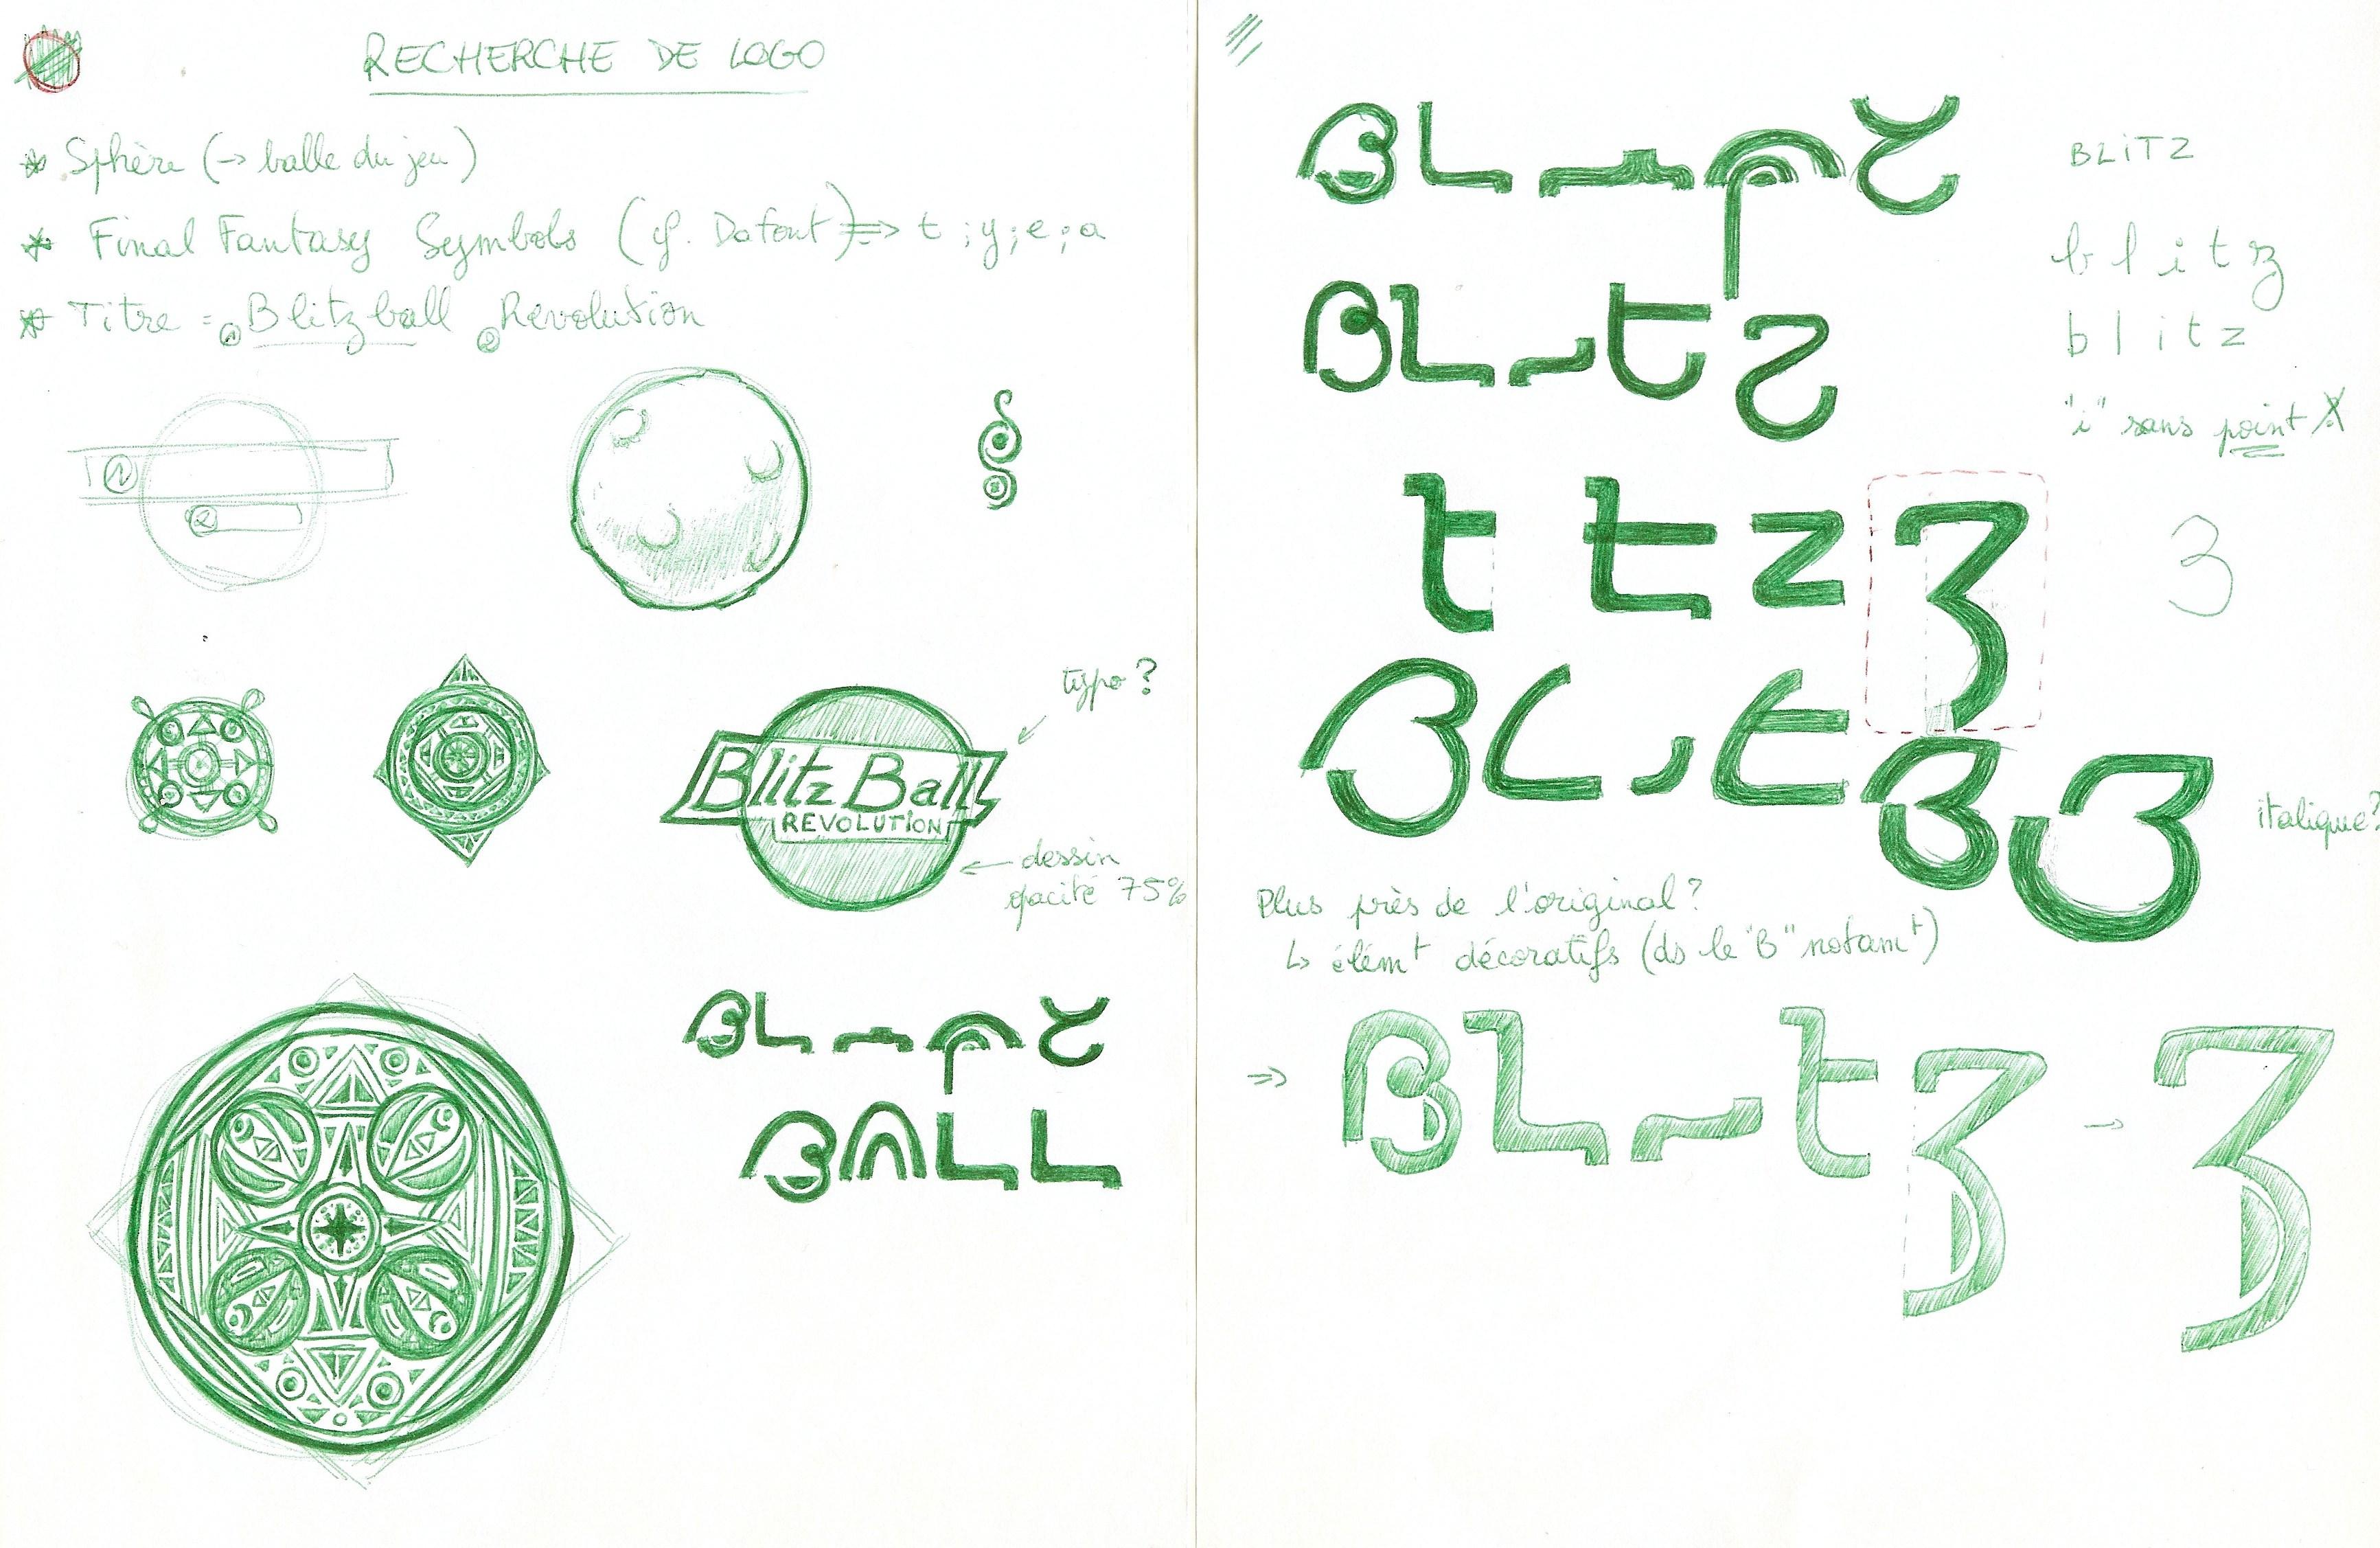 RECHERCHE DE LOGO
* Sphère (→ balle du jeu)
* Final Fantasy Symbols (cf. Dafont) ⇒ t ; y ; e ; a
* Titre = ① Blitzball ② Revolution
1
2
typo ?
Blitz Ball
REVOLUTION
← dessin
opacité 75%
BLITZ
BALL
BLITZ
BLiTZ
blitz
BLITZ
blitz
"i" sans point
t t z 3
3
BLITZ 3
italique?
Plus près de l'original ?
↳ élémt décoratifs (ds le "B" notamt)
⇒ BLITZ → 3